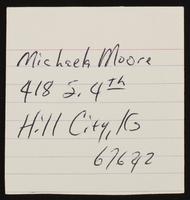 Michaela Moore
418 S. 4th
Hill City, KS
67642